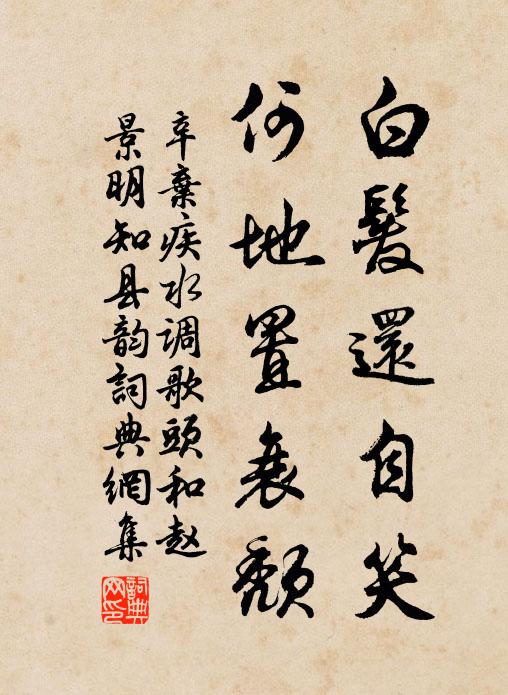 白髮還自笑
何地置衰頹
辛棄疾水調歌頭和赵
景明知县韵詞典網集
詞典網印